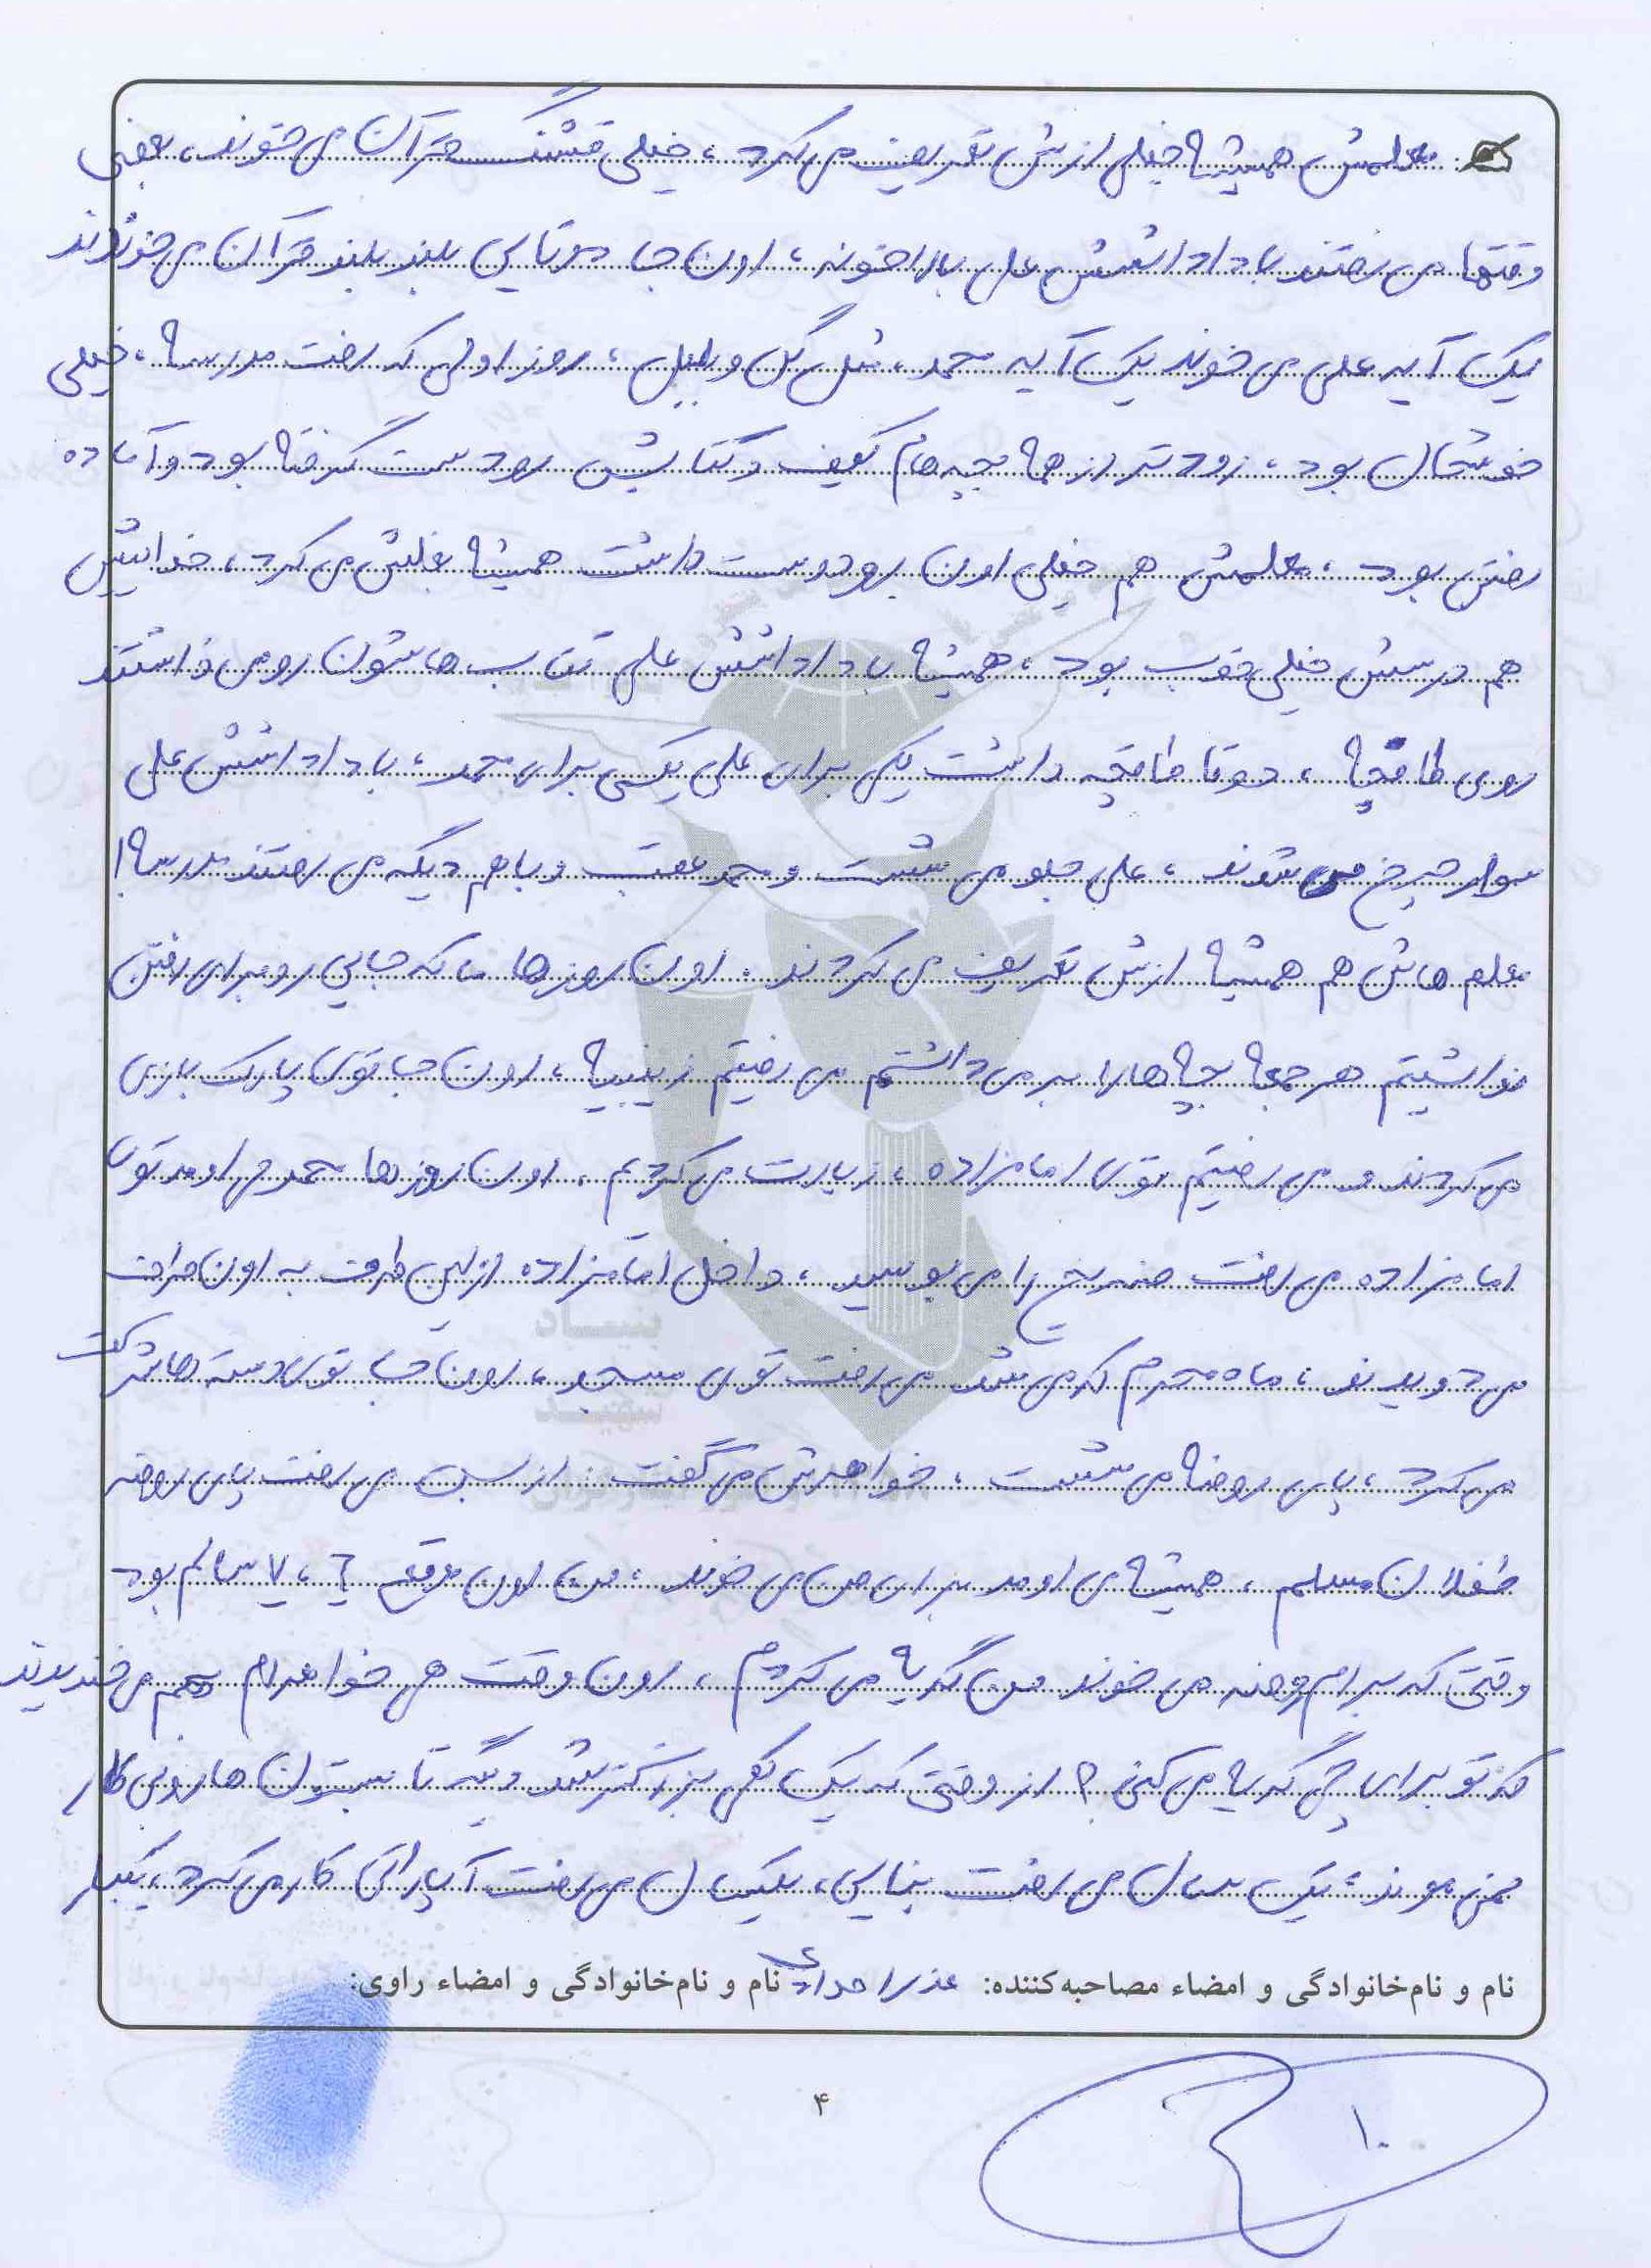 معلمش همیشه خیلی ازش تعریف می‌کرد، خیلی قشنگ قرآن می‌خوند، بعضی
وقتها می‌رفتند با داداشش علی بالاخونه، اون جا دوتایی بلند بلند قرآن می‌خوندند
یک آیه علی می‌خوند یک آیه محمد، مثل گل و بلبل، روز اولی که رفت مدرسه، خیلی
خوشحال بود، زودتر از همه بچه‌هام کیف و کتابش رو دست گرفته بود و آماده
رفتن بود، معلمش هم خیلی اون رو دوست داشت همیشه بغلش می‌کرد، خدائیش
هم درسش خیلی خوب بود، همیشه با داداشش علی کتاب‌هاشون رو می‌ذاشتند
روی طاقچه، دوتا طاقچه داشت یکی برای علی یکی برای محمد، با داداشش علی
سوار چرخ می‌شدند، علی جلو می‌شست و محمد عقب و با هم دیگه می‌رفتند مدرسه!
معلم هاش هم همیشه ازش تعریف می‌کردند. اون روزها ما که جایی رو برای رفتن
نداشتیم هر جمعه بچه‌ها را بر می‌داشتم می‌رفتیم زینبیه، اون جا توی پارک بازی
می‌کردند و می‌رفتیم توی امامزاده، زیارت می‌کردیم، اون روزها محمد می‌اومد توی
امامزاده می‌رفت ضریح را می‌بوسید، داخل امامزاده از این طرف به اون طرف
می‌دویدند، ماه محرم که می‌شد می‌رفت توی مسجد، اون جا توی دسته‌ها شرکت
می‌کرد، پای روضه می‌شست، خواهرش می‌گفت: از بس می‌رفت پای روضه
طفلان مسلم، همیشه می‌اومد برای من می‌خوند، من اون موقع ۶، ۷ سالم بود
وقتی که برام روضه می‌خوند من گریه می‌کردم، اون وقت هی خواهرام هم می‌خندیدند
که تو برای چی گریه می‌کنی؟ از وقتی که یک کمی بزرگتر شد دیگه تابستون‌ها زودی کار
نمی‌موند، یک سال می‌رفت بنایی، یکسال می‌رفت آپاراتی کار می‌کرد، یکبار
نام و نام‌خانوادگی و امضاء مصاحبه‌کننده: عذرا مرادی نام و نام‌خانوادگی و امضاء راوی:
۴
۱۰